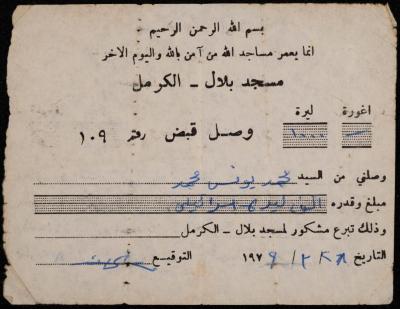 بسم الله الرحمن الرحيم
انما يعمر مساجد الله من آمن بالله واليوم الاخر
مسجد بلال – الكرمل
اغورة ليرة
— ١٠٠٠
وصل قبض رقم ١٠٩
وصلني من السيد محمد يونس محمد
مبلغ وقدره الف ليرة اسرائيلي
وذلك تبرع مشكور لمسجد بلال – الكرمل
التاريخ ٢٨ / ٢ / ١٩٧٩ التوقيع